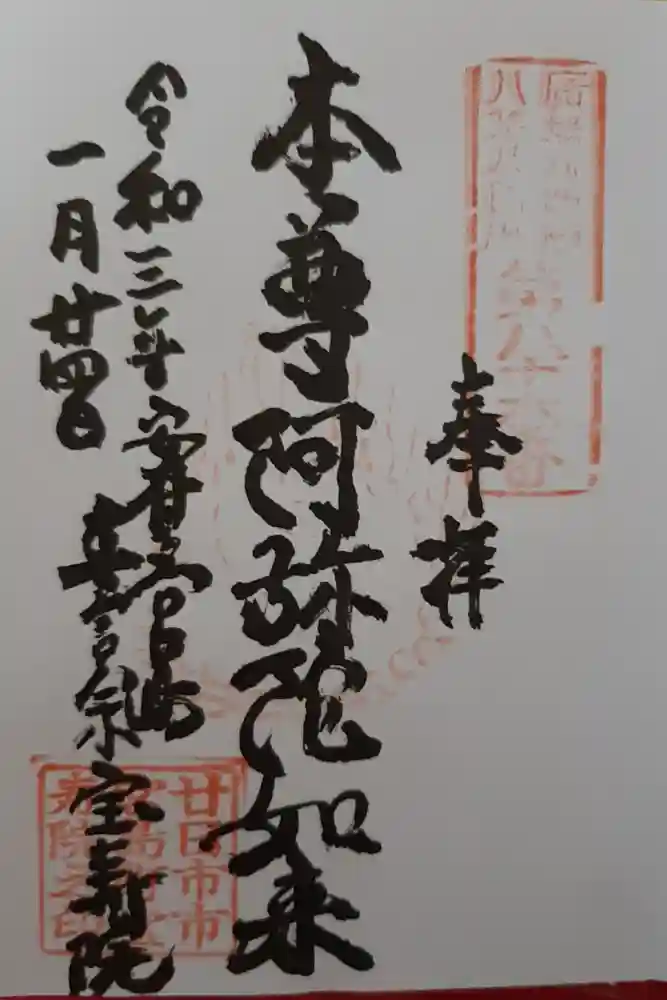 第八十六番
奉拝
本尊阿弥陀如来
令和三年
一月廿四日
安芸宮島
真言宗宝寿院
廿日市市